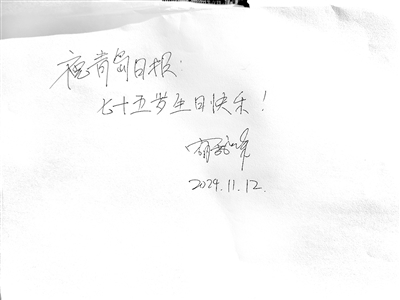 祝青岛日报：
七十五岁生日快乐！
2024.11.12.